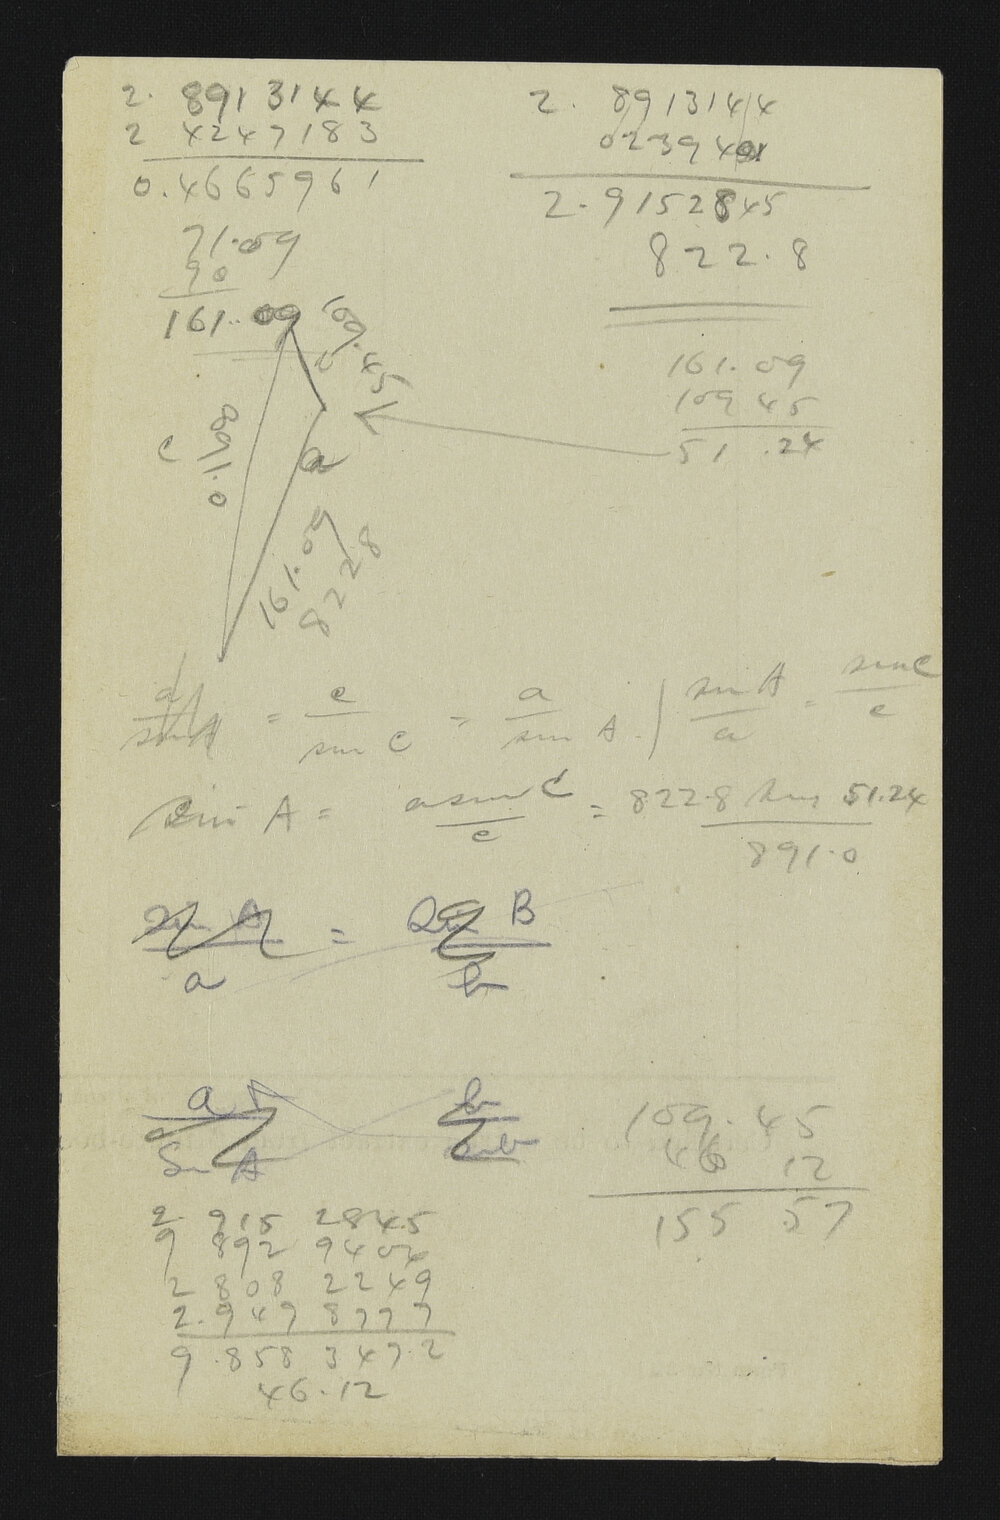 2. 8913144
2 4247183
0.4665961
71.09
90
161.09
2. 8913144
0239401
2.9152845
822.8
161.09
109 45
51 .24
109.45
c
891.0
a
161.09
8228
a/sin A = c/sin C = a/sin A. | sin A/a = sin C/c
sin A = a sin C/c = 822.8 sin 51.24/891.0
Sin A/a = Sin B/b
a/Sin A b/Sin b
109.45
46 12
155 57
2 915 2845
9 892 9404
2 808 2249
2.949 8777
9.858 347.2
46.12